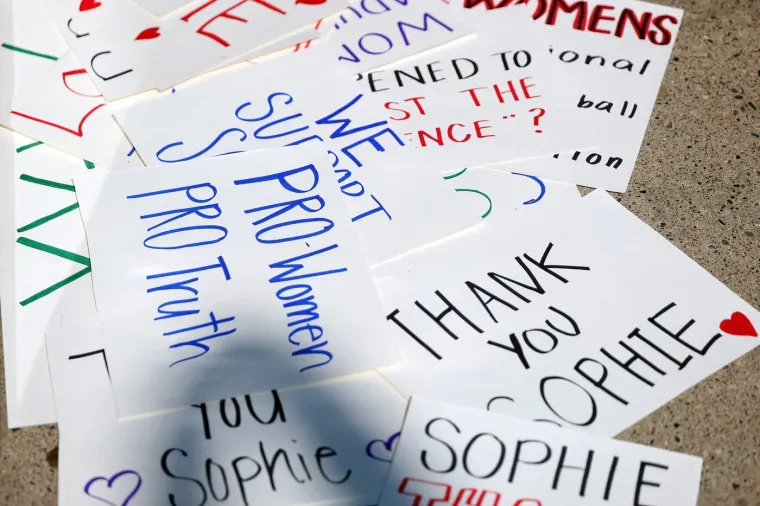 WOMENS
ional
ball
tion
PENED TO
ST THE
ENCE"?
WE
SU
PRO-Women
PRO Truth
THANK
YOU
SOPHIE
YOU
Sophie
SOPHIE